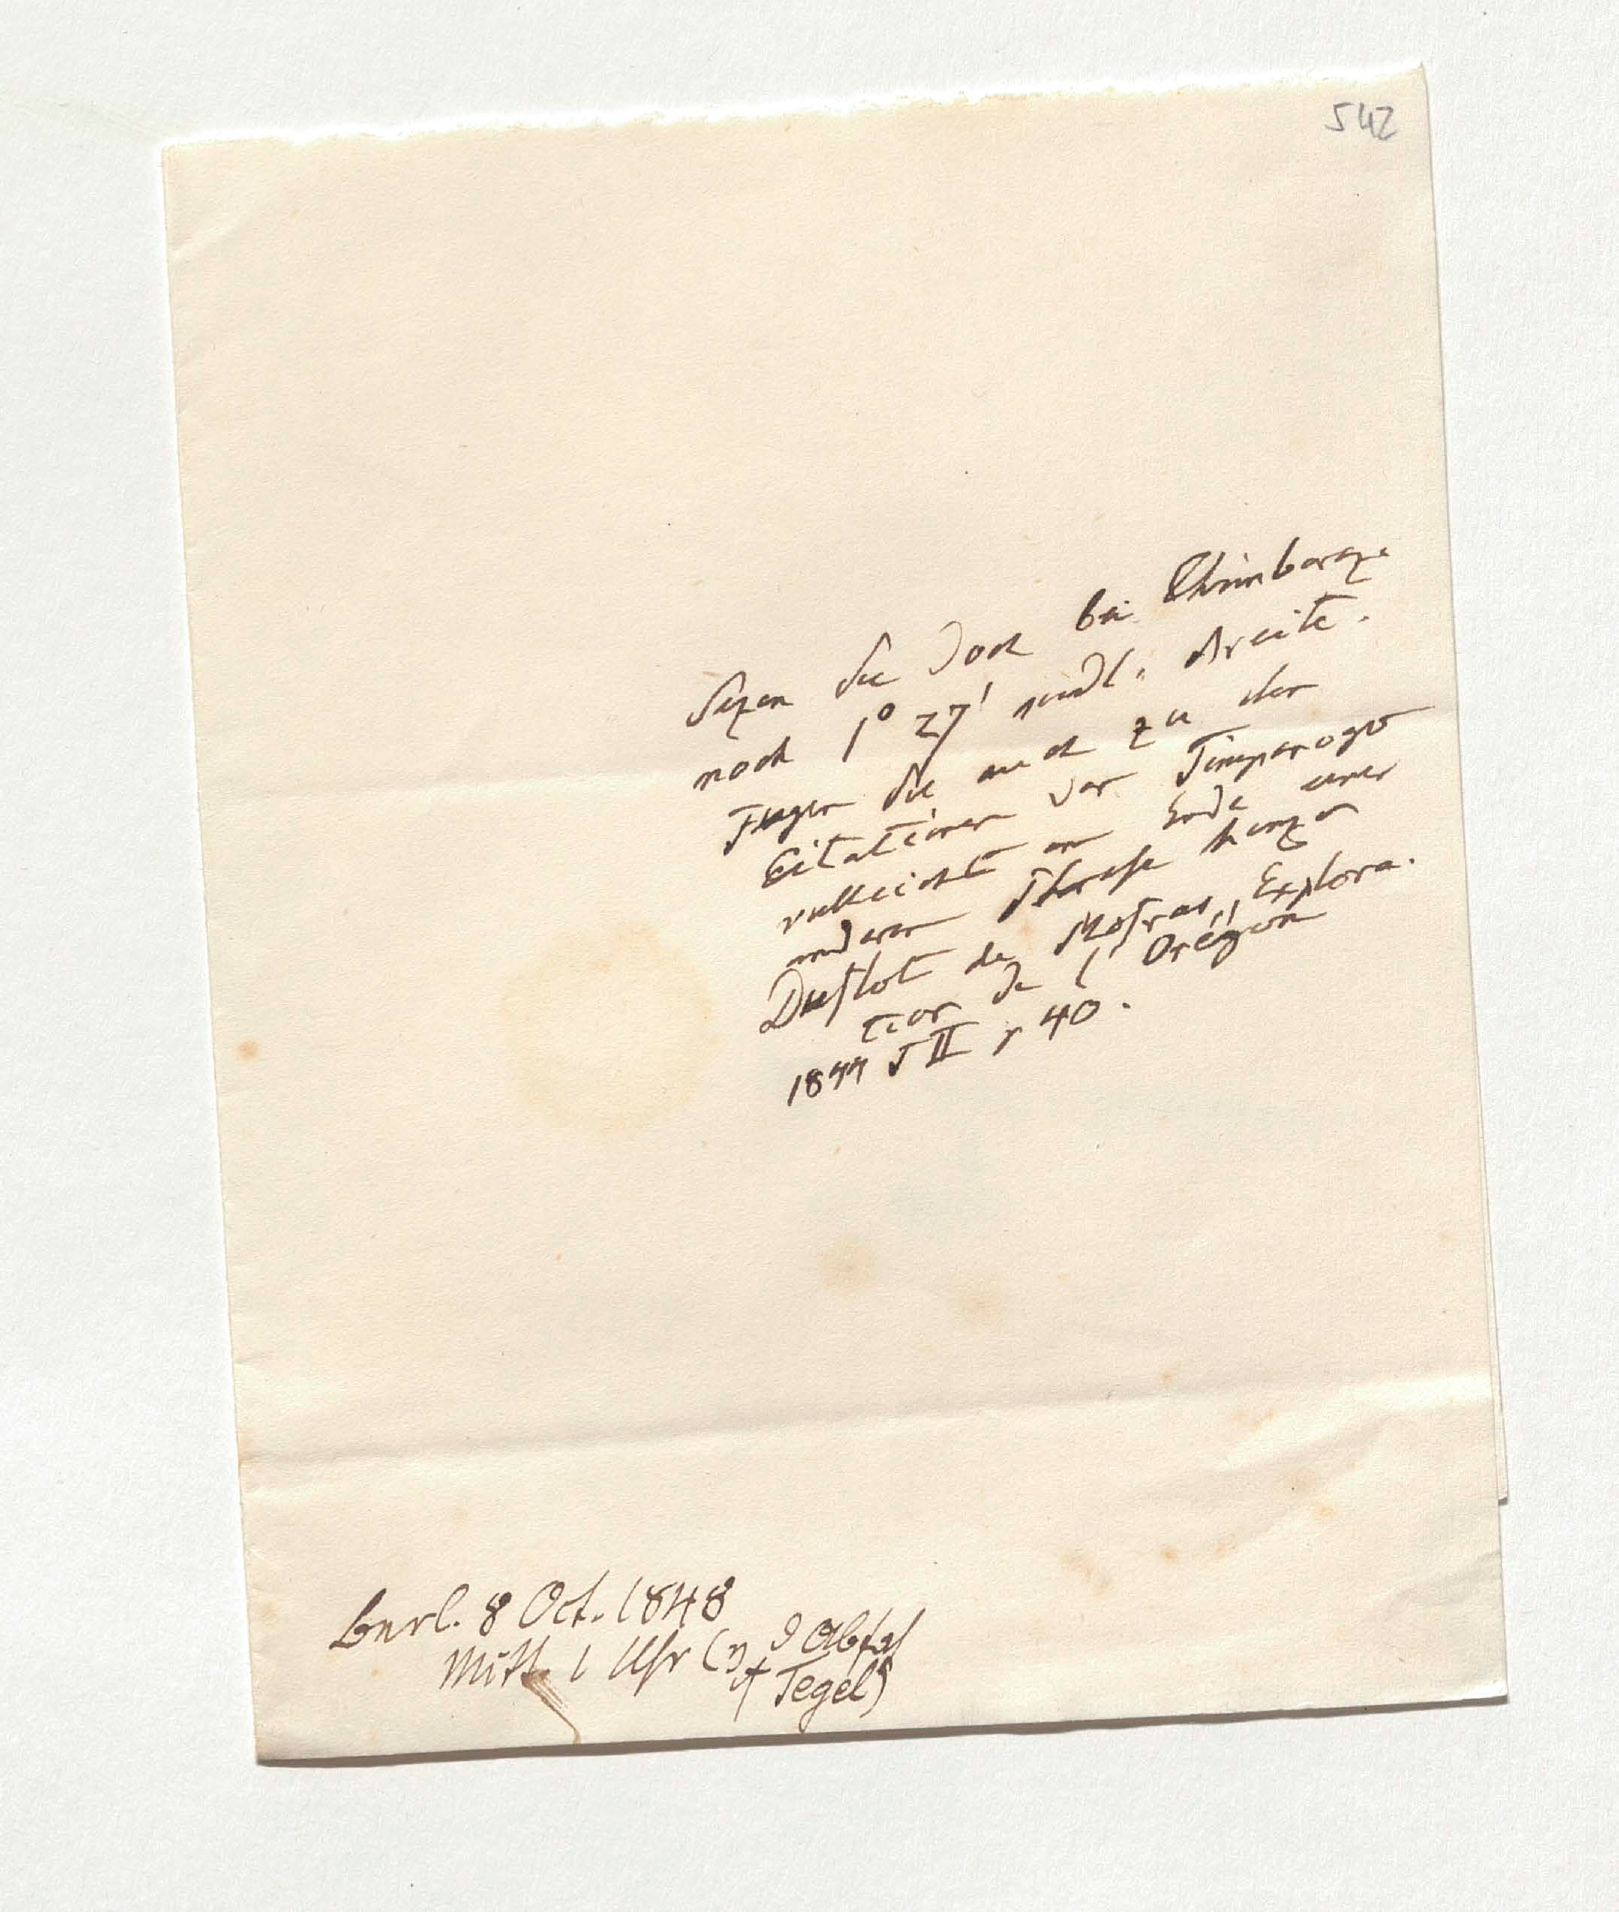 542
Sezen Sie doch bei Chimborazo
noch 1° 27' südl. Breite.
Fügen Sie auch zu den
Citationen von Timpanogo
vielleicht am Ende einer
anderen Phrase hinzu
Duflot de Mofras, Explora-
tion de l'Orégon
1844 T II p 40.
Berl. 8 Oct. 1848
Mitt. 1 Uhr (n d Abfa
Tegel)